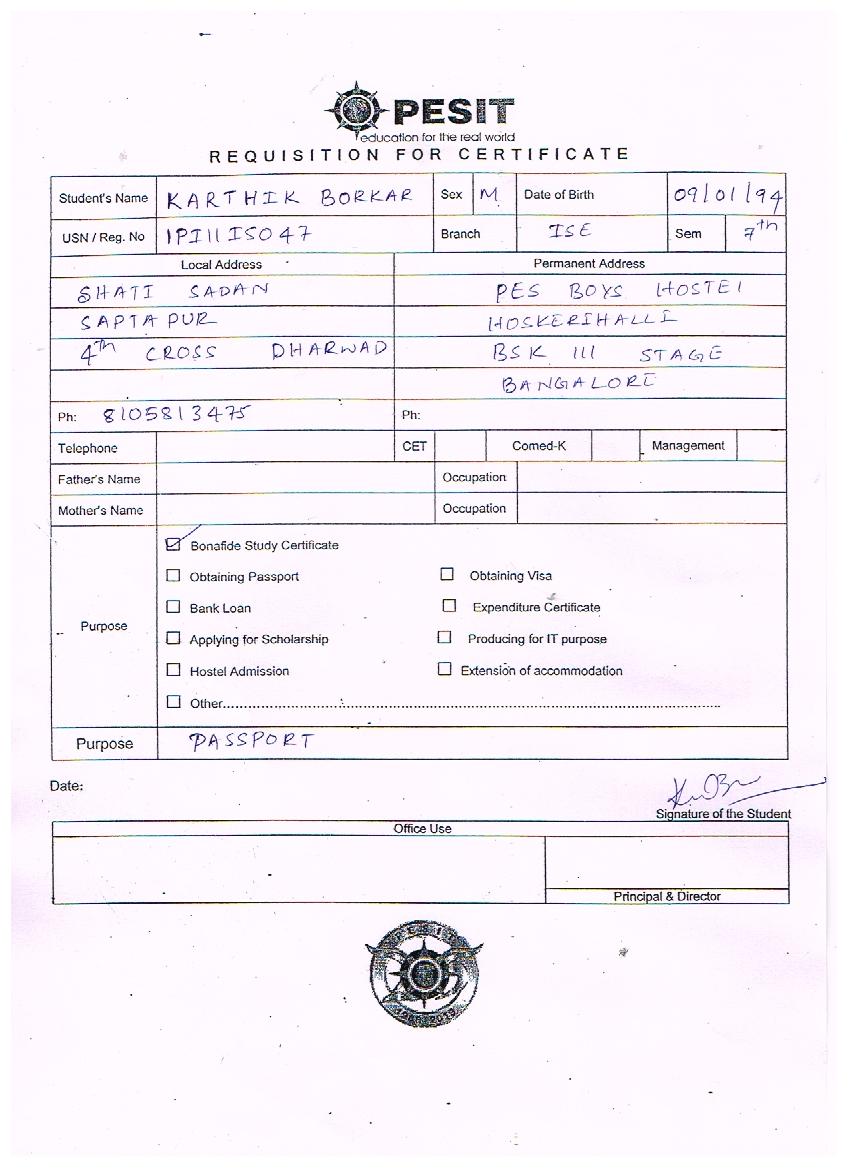 PESIT
education for the real world
REQUISITION FOR CERTIFICATE
Student's Name KARTHIK BORKAR Sex M Date of Birth 09/01/94
USN / Reg. No 1PI11IS047 Branch ISE Sem 7th
Local Address Permanent Address
SHATI SADAN PES BOYS HOSTEl
SAPTAPUR HOSKERIHALLI
4th CROSS DHARWAD BSK III STAGE
BANGALORE
Ph: 8105813475 Ph:
Telephone CET Comed-K Management
Father's Name Occupation
Mother's Name Occupation
Purpose
Bonafide Study Certificate
Obtaining Passport Obtaining Visa
Bank Loan Expenditure Certificate
Applying for Scholarship Producing for IT purpose
Hostel Admission Extension of accommodation
Other..........
Purpose PASSPORT
Date:
Signature of the Student
Office Use
Principal & Director
PESIT